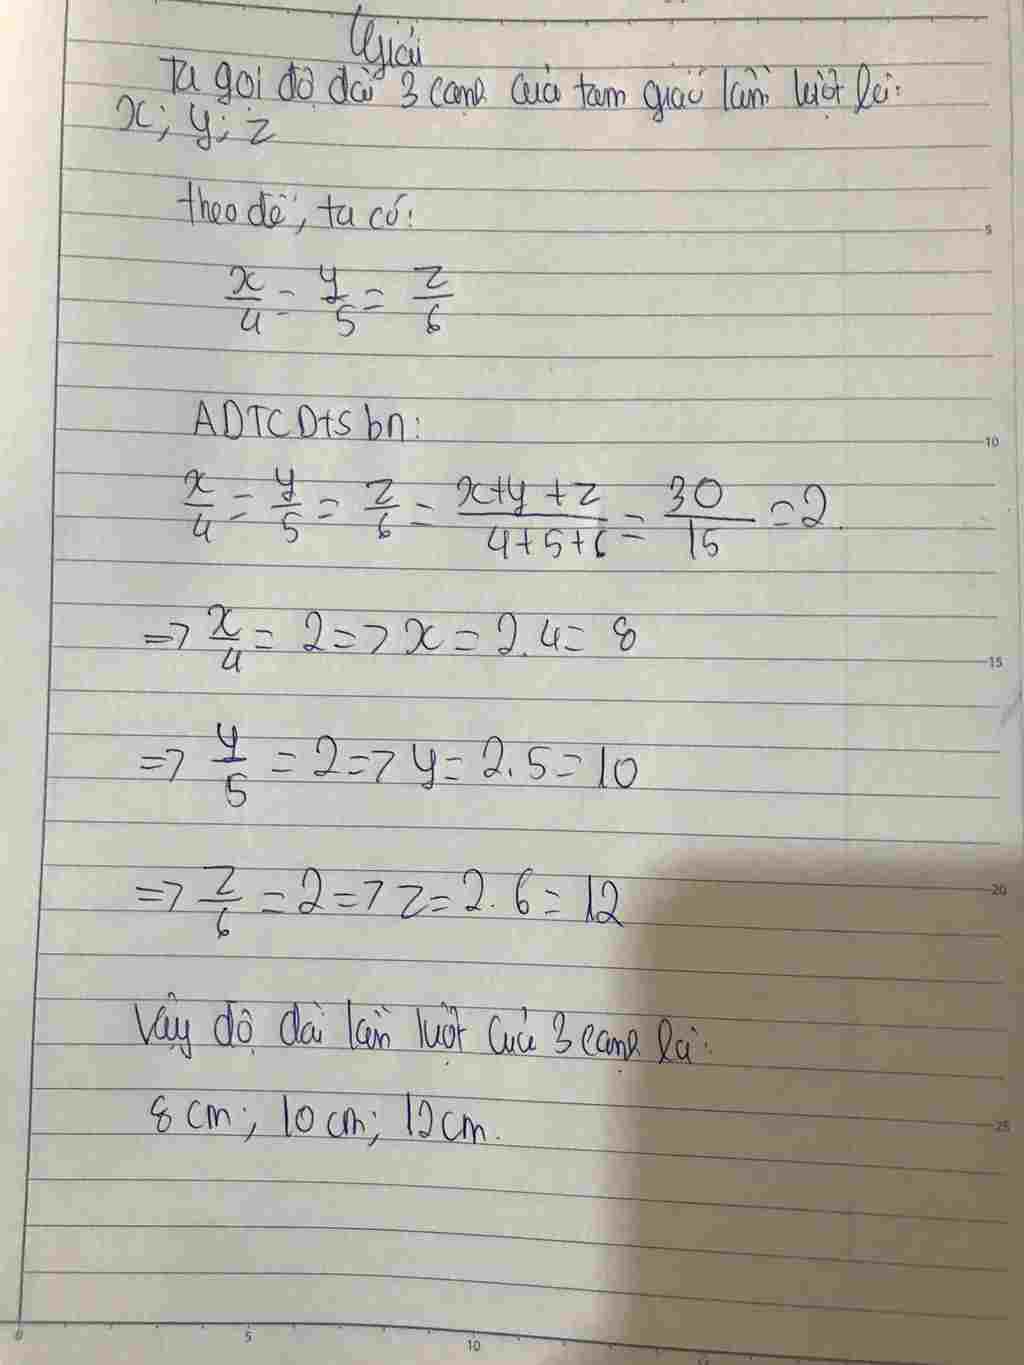 Giải
Ta gọi độ dài 3 cạnh của tam giác lần lượt là:
x; y; z
theo đề, ta có:
x/4 = y/5 = z/6
ADTCDTSbn:
x/4 = y/5 = z/6 = x+y+z/4+5+6 = 30/15 = 2.
=> x/4 = 2 => x = 2.4 = 8
=> y/5 = 2 => y = 2.5 = 10
=> z/6 = 2 => z = 2.6 = 12
Vậy độ dài lần lượt của 3 cạnh là:
8cm; 10cm; 12cm.
5
10
15
20
25
0
5
10